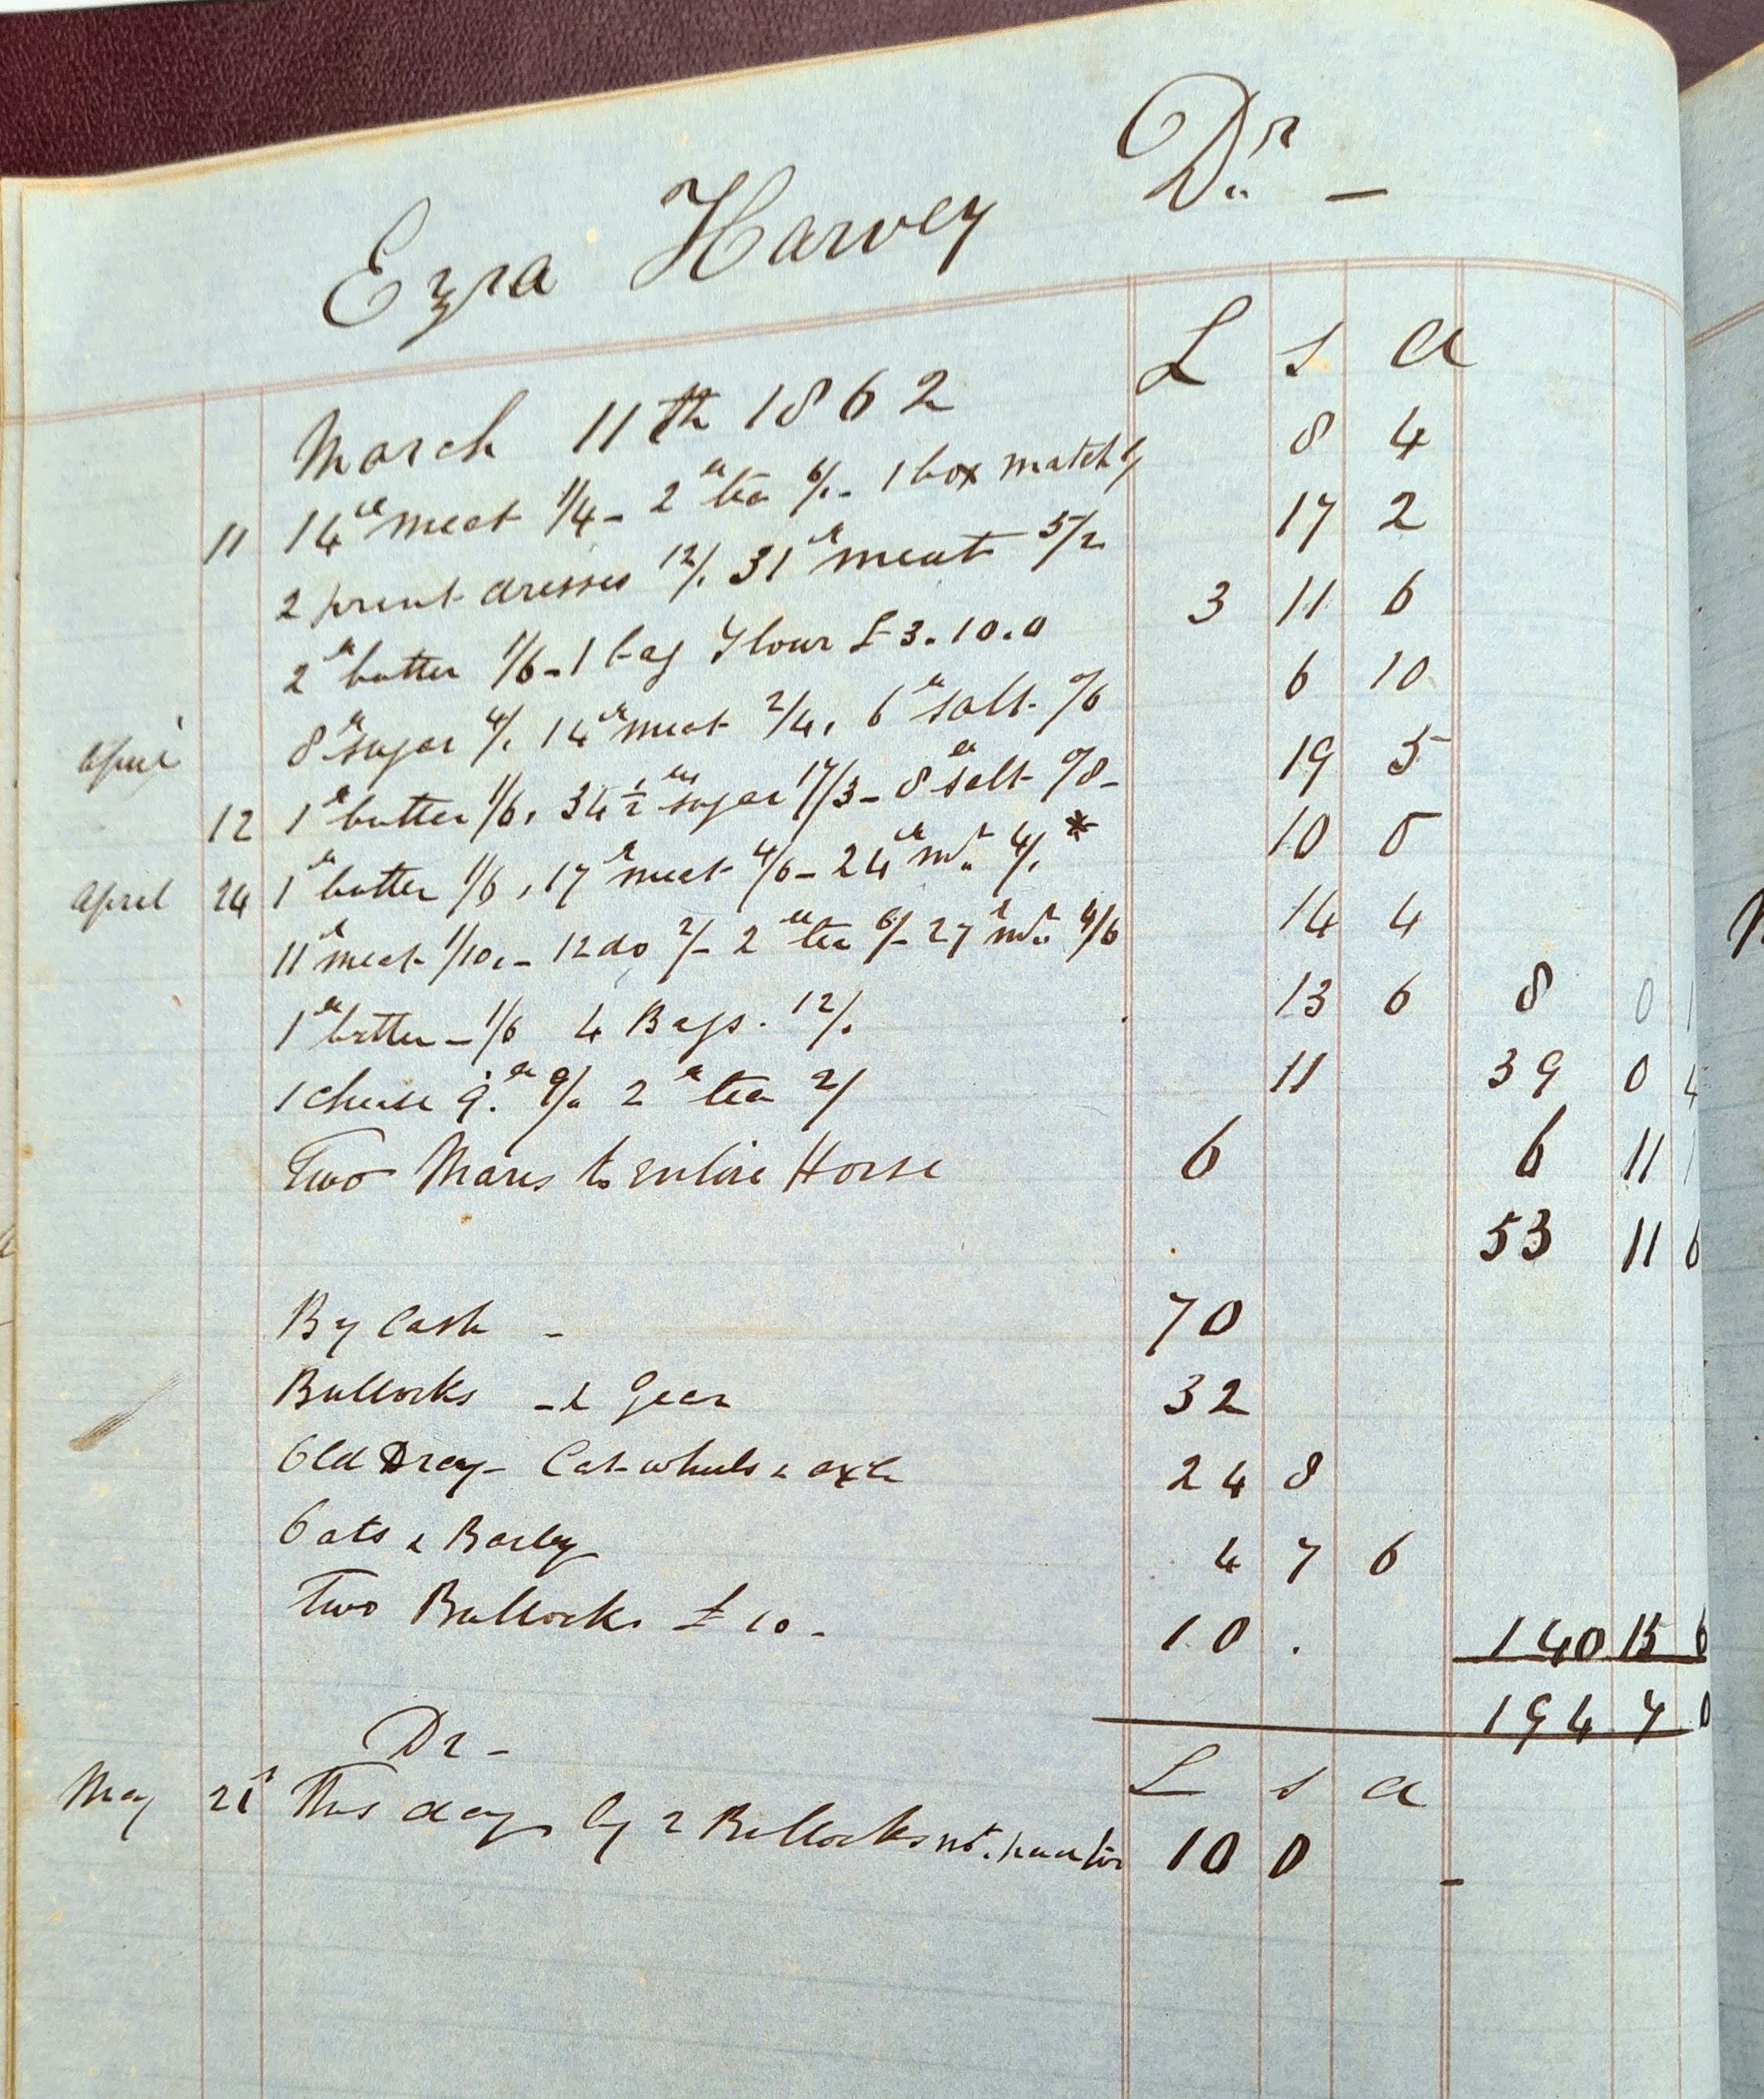 Ezra Harvey Dr. –
£ s d
March 11th 1862
11 14 lb meat 1/4 – 2 lb tea 6/. – 1 box match 8 4
2 print dresses 12/. 31 lb meat 5/2 17 2
2 lb butter 1/6 – 1 bag Flour £3.10.0 3 11 6
8 lb sugar 4/. 14 lb meat 2/4, 6 lb salt 0/6 6 10
April
12 1 lb butter 1/6, 34 1/2 lbs sugar 17/3 – 8 lb salt 0/8 – 19 5
April 24 1 lb butter 1/6, 17 lb meat 4/6 – 24 lb 4/. * 10 0
11 lb meat 1/10, – 12 do 2/– 2 lb tea 6/– 27 lb 4/6 14 4
1 lb butter – 1/6 4 Bags. 12/. 13 6 8 0 1
1 cheese 9. lb 9/. 2 lb tea 2/ 11 39 0 4
Two Mares to entire Horse 6 6 11 1
53 11 6
By Cash – 70
Bullocks – & Gear 32
Old Dray – Cat wheels & axle 24 8
Oats & Barley 4 7 6
Two Bullocks £10 – 10 . 140 15 6
194 7 0
Dr –
£ s d
May 21st This day by 2 Bullocks not paid for 10 0 –